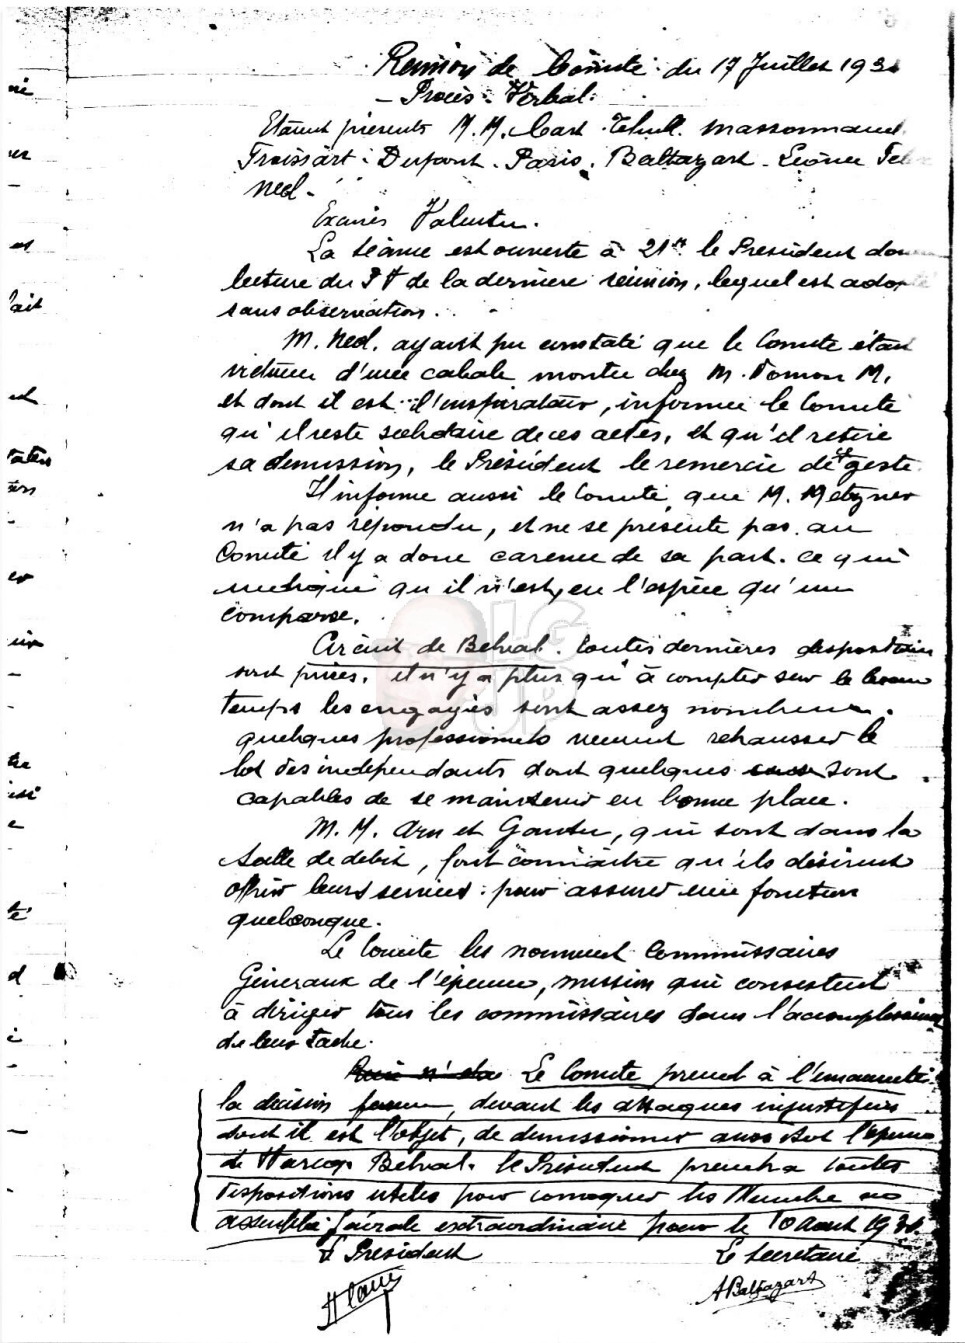 Réunion de Comité du 17 Juillet 193
- Procès-Verbal.
Etaient présents M.M. Massonnaud
Froissart. Dupont. Paris. Baltazart. Léonce
Ned.
Excusés Valentin.
La séance est ouverte à 21h le Président
lecture du P V de la dernière réunion, lequel est
sans observation.
M. Ned. ayant pu constaté que le Comité était
victime d'une cabale montée chez M. M.
et dont il est l'inspirateur, informe le Comité
qu'il reste solidaire de ces actes, et qu'il retire
sa démission, le Président le remercie de ce geste.
Il informe aussi le Comité que M. Metzner
n'a pas répondu, et ne se présente pas au
Comité il y a donc carence de sa part. ce qui
indique qu il n'est, en l'espèce qu'un
comparse.
Circuit de Belval. toutes dernières disposition
sont prises, il n'y a plus qu'à compter sur le beau
temps les engagés sont assez nombreux.
quelques professionnels viennent rehausser le
lot des indépendants dont quelques sont
capables de se maintenir en bonne place.
M. M. Arn et Gantu, qui sont dans la
salle de débit, font connaître qu'ils désirent
offrir leurs services pour assurer une fonction
quelconque.
Le Comité les nomment Commissaires
Généraux de l'épreuve, mission qui consistent
à diriger tous les commissaires dans
de leur tache.
Le Comité prend à l'unanimité
la décision, devant les attaques injustifiées
dont il est l'objet, de démissionner aussitot
de Belval. le Président prendra toutes
dispositions utiles pour convoquer les Membre en
assemblée générale extraordinaire pour le 10 Aout 193
Le Président
Le Secrétaire
A Baltazart
LG
UP